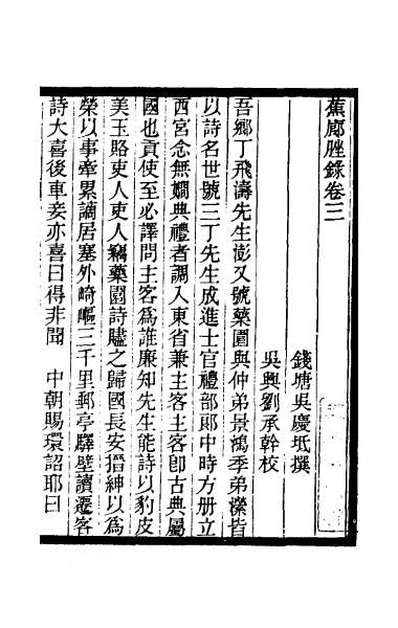 蕉廊脞錄卷三
錢塘吳慶坻撰
吳興劉承幹校
吾鄉丁飛濤先生澎又號藥園與仲弟景鴻季弟瀠皆
以詩名世號三丁先生成進士官禮部郞中時方册立
西宮念無嫺典禮者調入東省兼主客主客卽古典屬
國也貢使至必譯問主客爲誰廉知先生能詩以豹皮
美玉賂吏人吏人竊藥園詩贐之歸國長安搢紳以爲
榮以事牽累謫居塞外崎嶇三千里郵亭驛壁讀遷客
詩大喜後車妾亦喜曰得非聞　中朝賜環詔耶曰